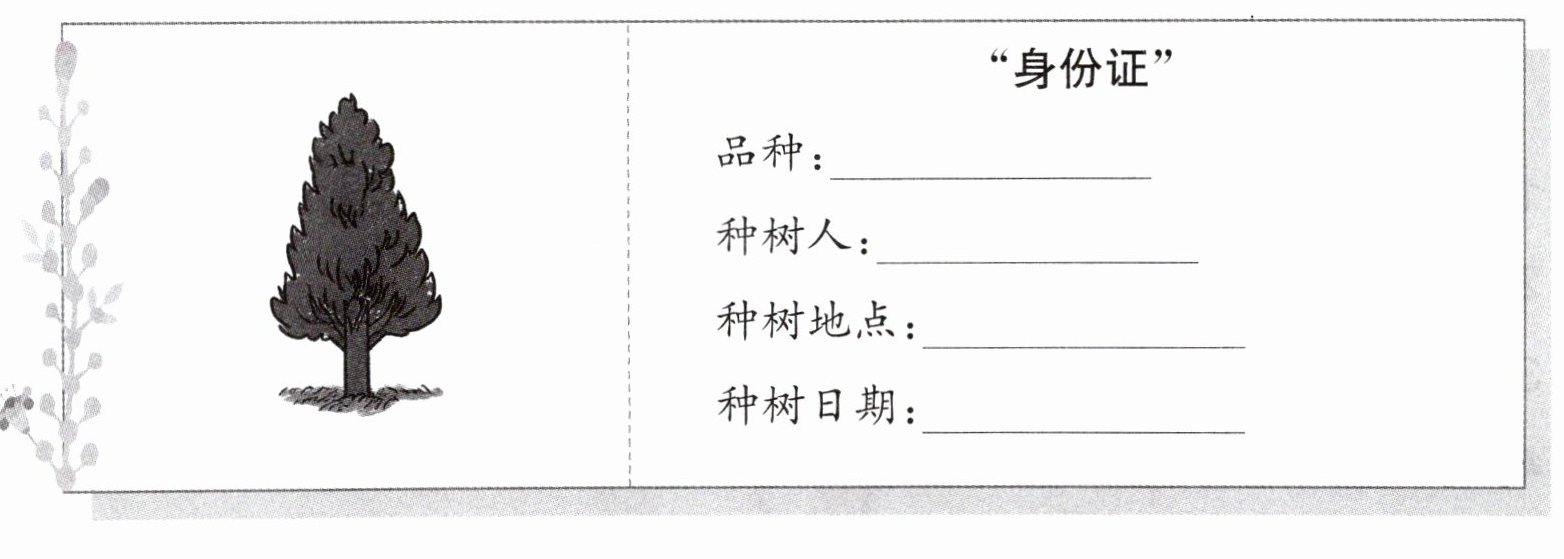 “身份证”
品种：
种树人：
种树地点：
种树日期：